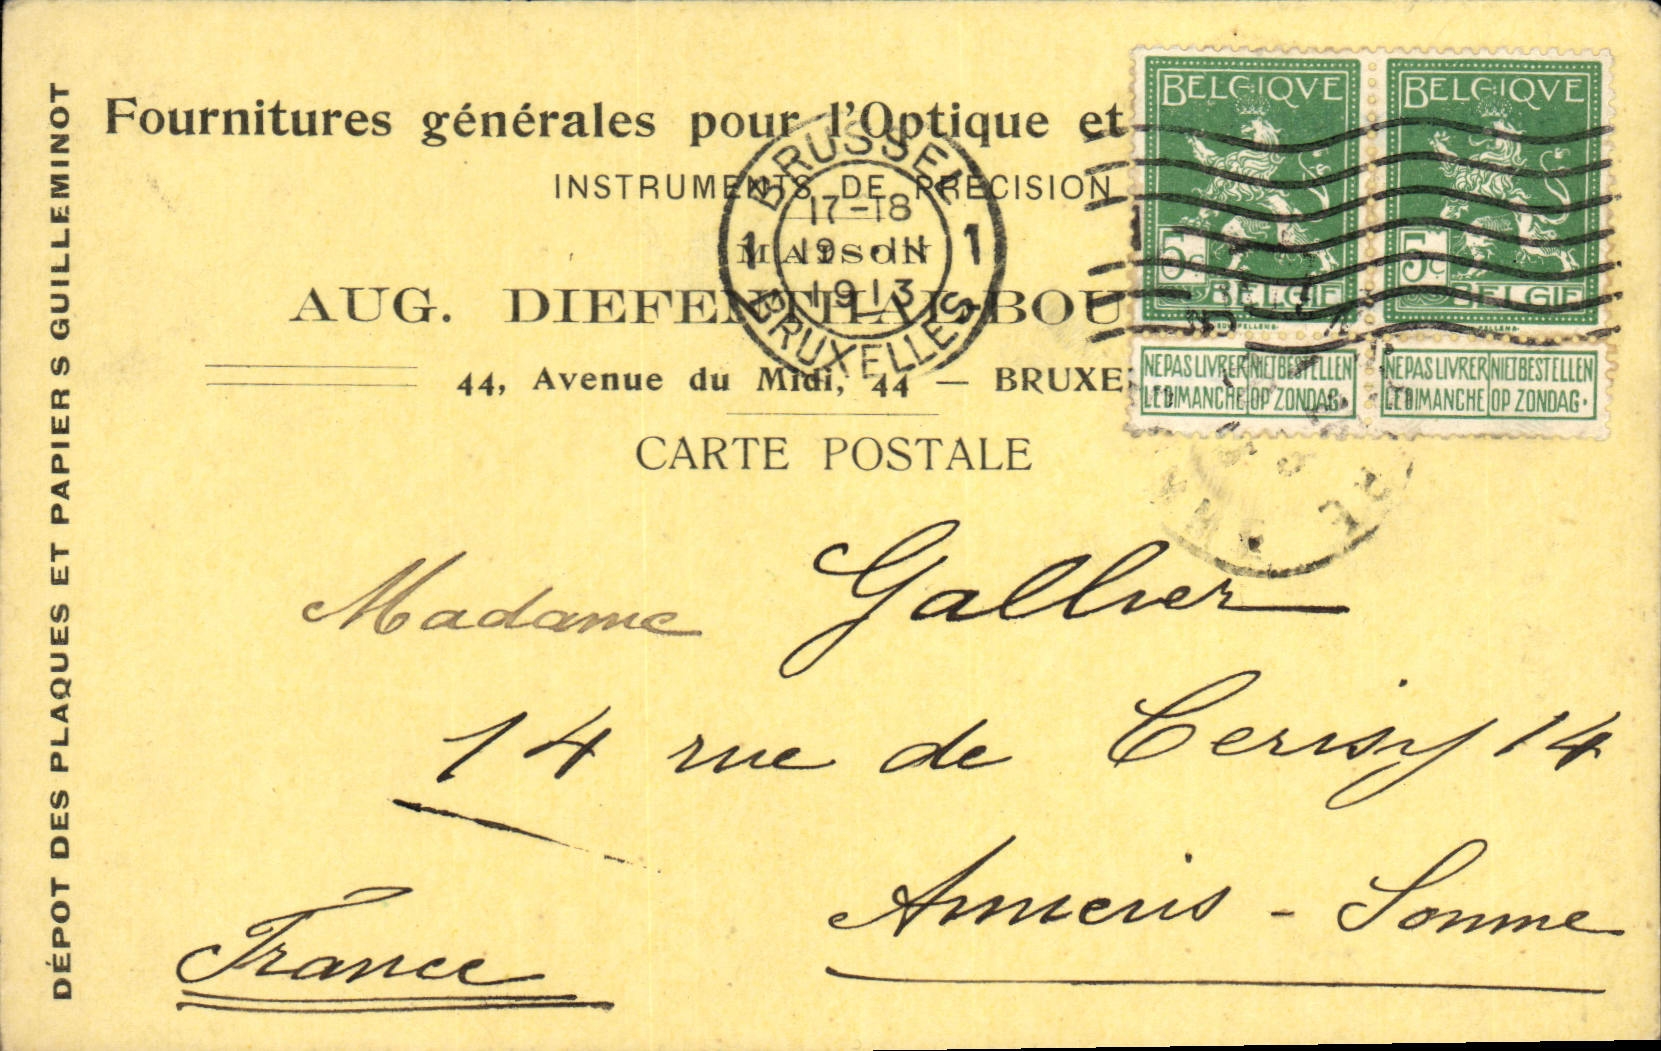 DÉPOT DES PLAQUES ET PAPIERS GUILLEMINOT
Fournitures générales pour l'Optique et
INSTRUMENTS DE PRÉCISION
MAISON
AUG. DIEFENTHAL-BOU
44, Avenue du Midi, 44 — BRUXE
CARTE POSTALE
BRUSSEL
17-18
19 · III
1913
1 1
BRUXELLES
BELGIQVE
5c
BELGIE
NE PAS LIVRER LE DIMANCHE
NIET BESTELLEN OP ZONDAG.
BELGIQVE
5c
BELGIE
NE PAS LIVRER LE DIMANCHE
NIET BESTELLEN OP ZONDAG.
Madame Gallier
14 rue de Cerisy 14
Amiens - Somme
France